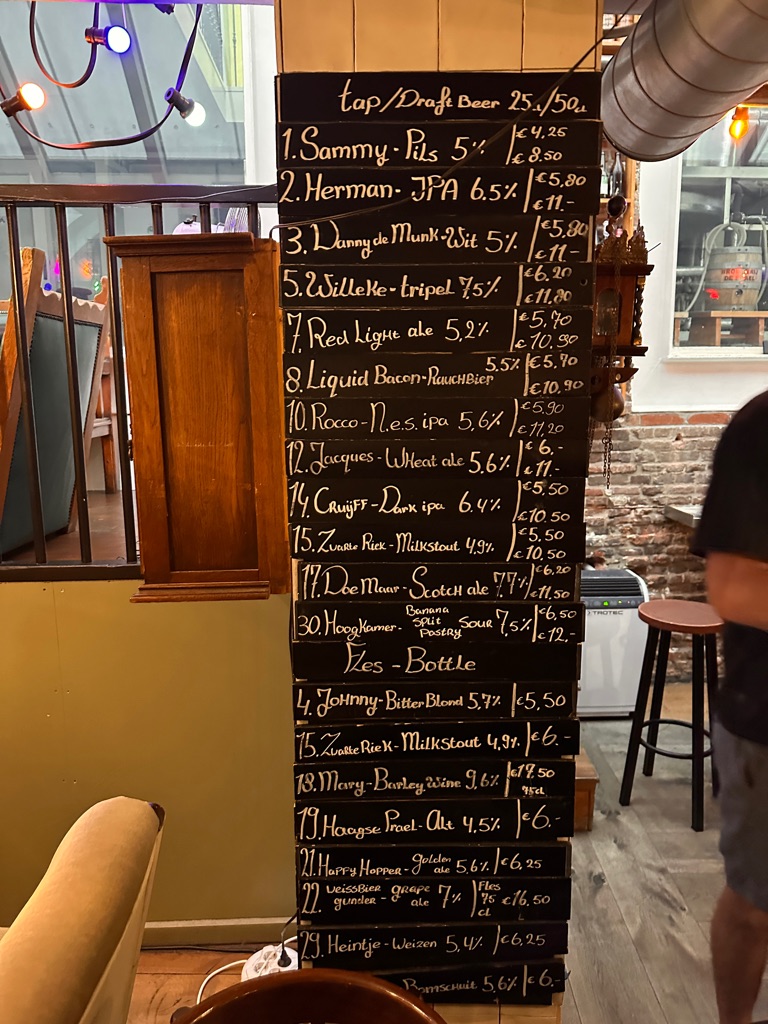 tap/Draft Beer 25cl/50cl
1. Sammy - Pils 5% €4,25
€8.50
2. Herman - IPA 6.5% €5,80
€11.-
3. Danny de Munk - Wit 5% €5,80
€11-
5. Willeke - tripel 7,5% €6,20
€11,80
7. Red Light ale 5,2% €5,70
€10.90
8. Liquid Bacon - Rauchbier 5,5% €5.70
€10.90
10. Rocco - N.e.s. ipa 5,6% €5,90
€11,20
12. Jacques - Wheat ale 5,6% €6.-
€11.-
14. Cruijff - Dark ipa 6.4% €5,50
€10.50
15. Zwarte Riek - Milkstout 4,9% €5,50
€10,50
17. Doe Maar - Scotch ale 7,7% €6,20
€11,50
30. Hoogkamer - Banana Split Pastry Sour 7,5% €6,50
€12.-
Fles - Bottle
4. Johnny - Bitter Blond 5,7% €5,50
15. Zwarte Riek - Milkstout 4,9% €6.-
18. Mary - Barley Wine 9,6% €17.50
75cl
19. Haagse Prael - Alt 4,5% €6.-
21. Happy Hopper - golden ale 5,6% €6,25
22. Veissbier gunder - grape ale 7% Fles 75 cl €16,50
29. Heintje - Weizen 5,4% €6,25
Bomschuit 5,6% €6.-
TROTEC